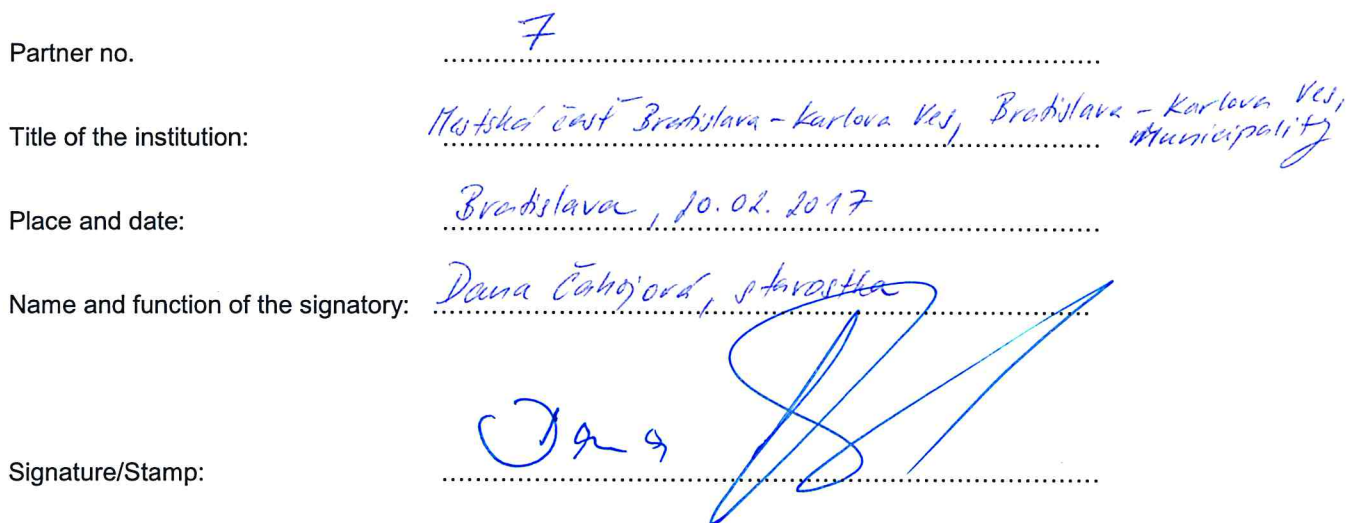 Partner no. 7
Title of the institution: Mestská časť Bratislava - Karlova Ves, Bratislava - Karlova Ves, Municipality
Place and date: Bratislava, 20.02.2017
Name and function of the signatory: Dana Čahojová, starostka
Signature/Stamp: Dana